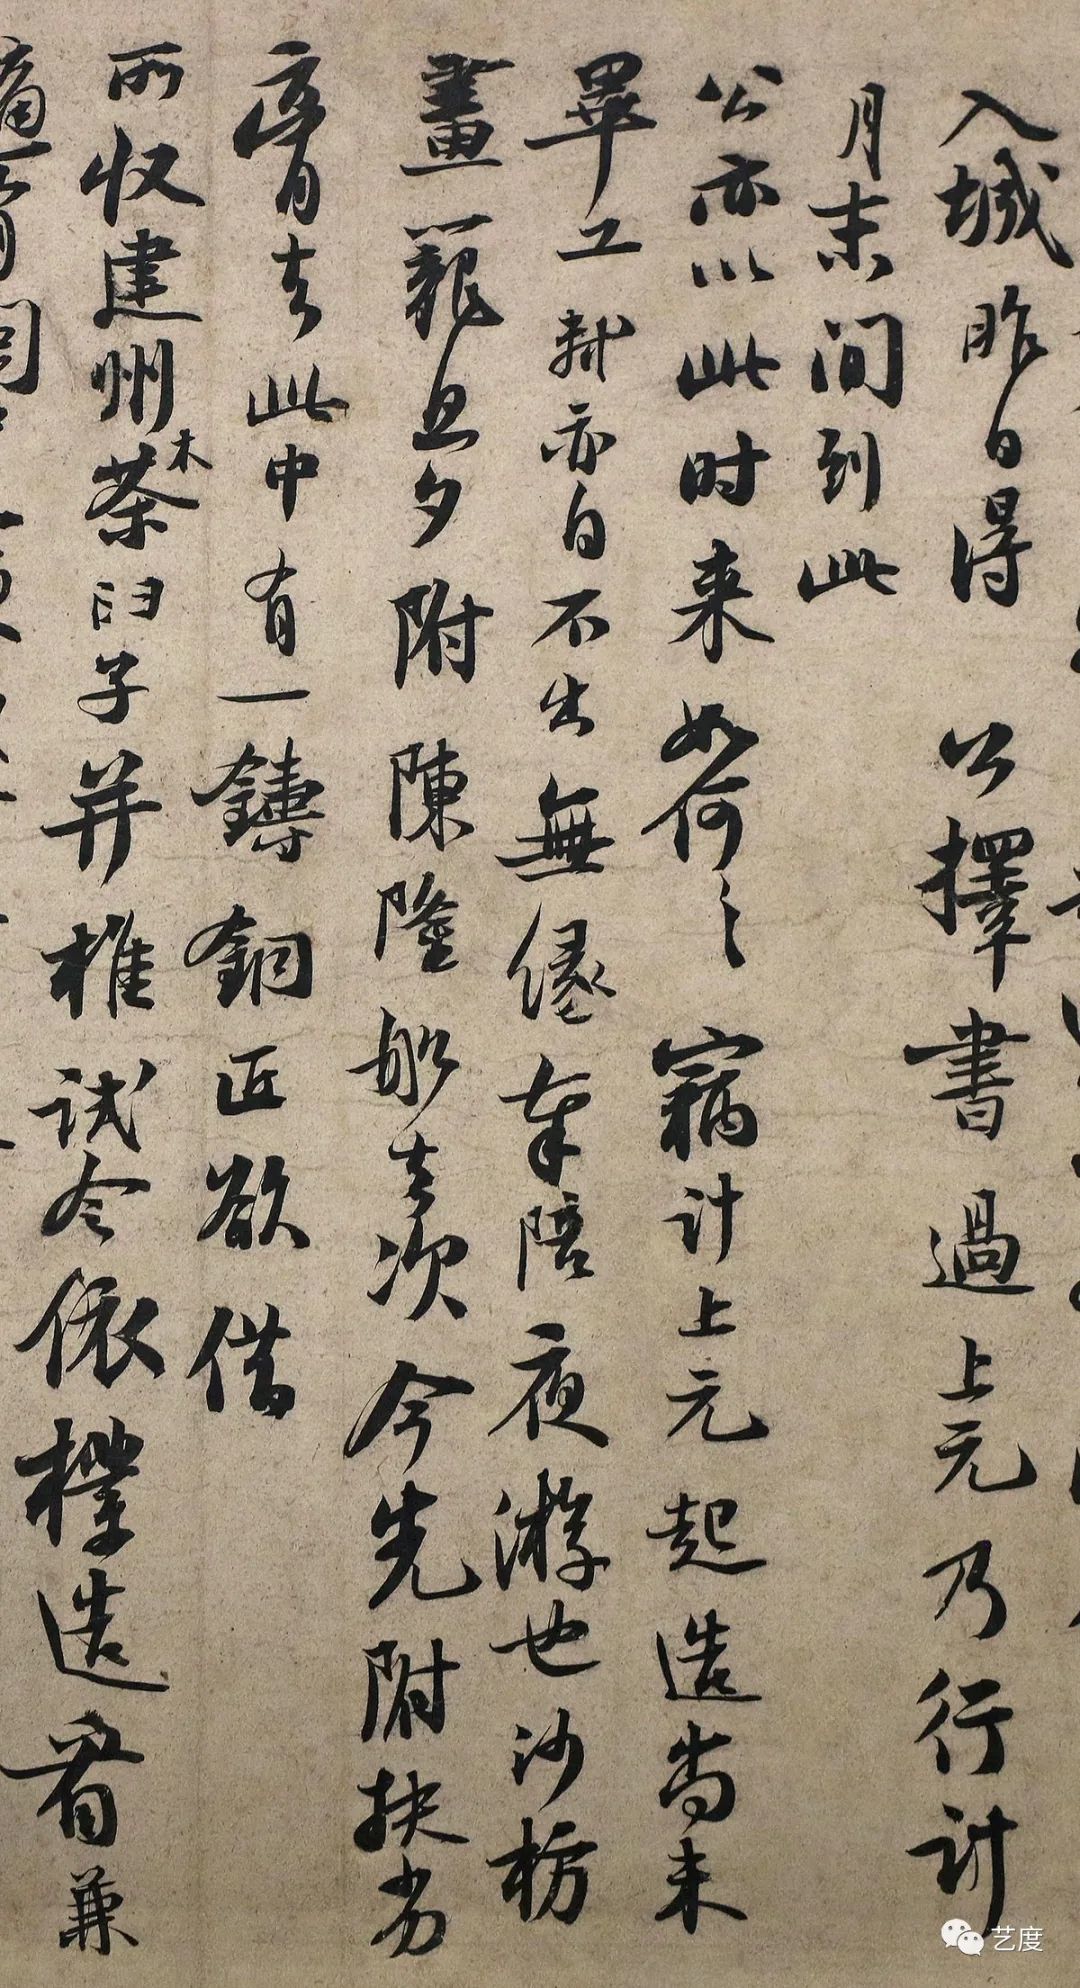 入城昨日得 公擇書過上元乃行計
月末間到此
公亦以此時來如何〻竊計上元起造尚未
畢工軾亦自不出無緣奉陪夜游也沙枋
畫籠旦夕附陳隆船去次今先附扶劣
膏去此中有一鑄銅匠欲借
所收建州木茶臼子并椎試令依樣造看兼
適有閩
艺度